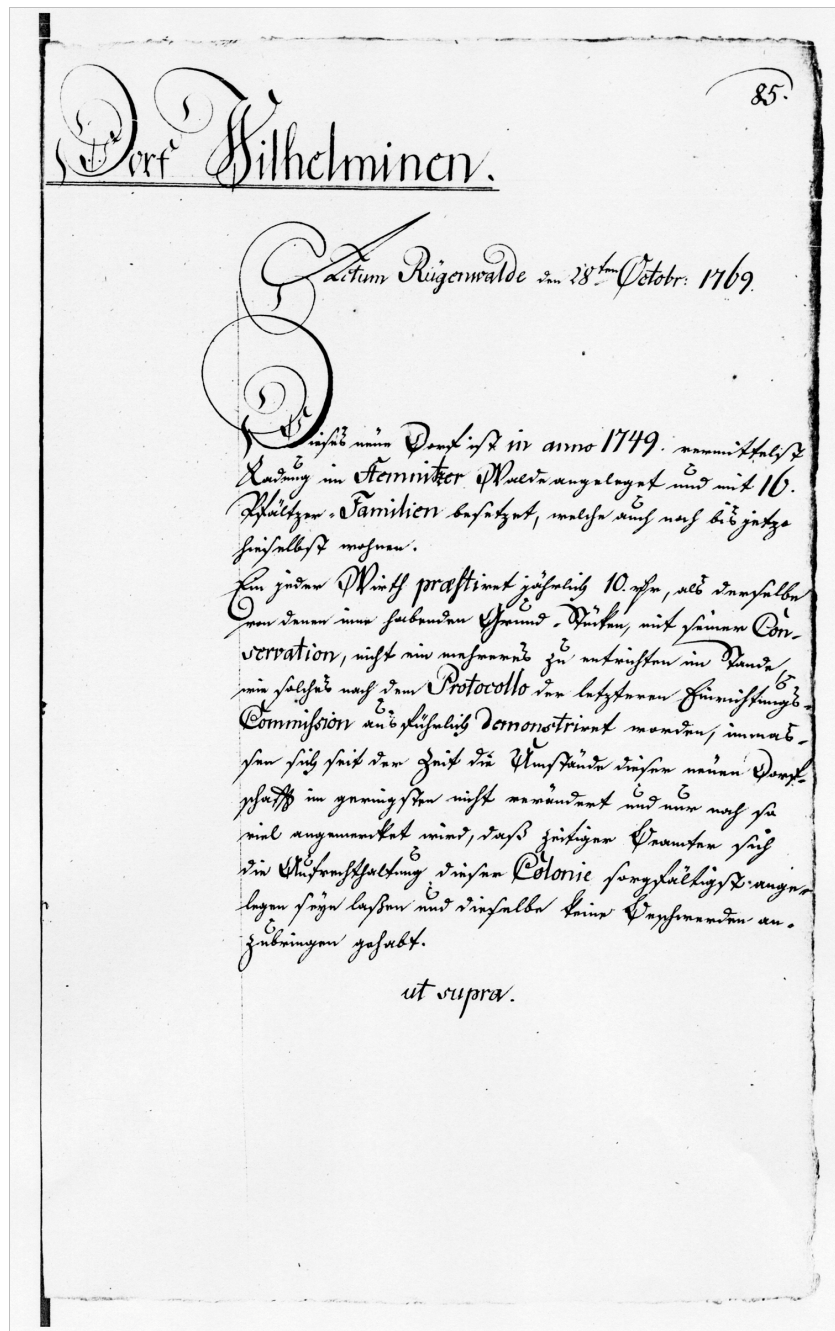 85.
Dorf Wilhelminen.
Actum Rügenwalde den 28ten Octobr: 1769.
Dieses neüe Dorf ist in anno 1749. vermittelst
Radung im Stemnitzer Walde angeleget und mit 16.
Pfältzer-Familien besetzet, welche auch noch bis jetzo
hieselbst wohnen.
Ein jeder Wirth præstiret jährlich 10. rthr, als derselbe
von denen inne habenden Grund-Stücken, mit seiner Con-
servation, nicht ein mehreres zu entrichten im Stande,
wie solches nach dem Protocollo der letzteren Einrichtungs-
Commission ausführlich demonstriret worden, immas-
sen sich seit der Zeit die Umstände dieser neuen Dorf-
schafft im geringsten nicht verändert und nur noch so
viel angemercket wird, daß zeitiger Beamter sich
die Aufrechthaltung dieser Colonie sorgfältigst ange-
legen seyn laßen und dieselbe keine Beschwerden an-
zubringen gehabt.
ut supra.